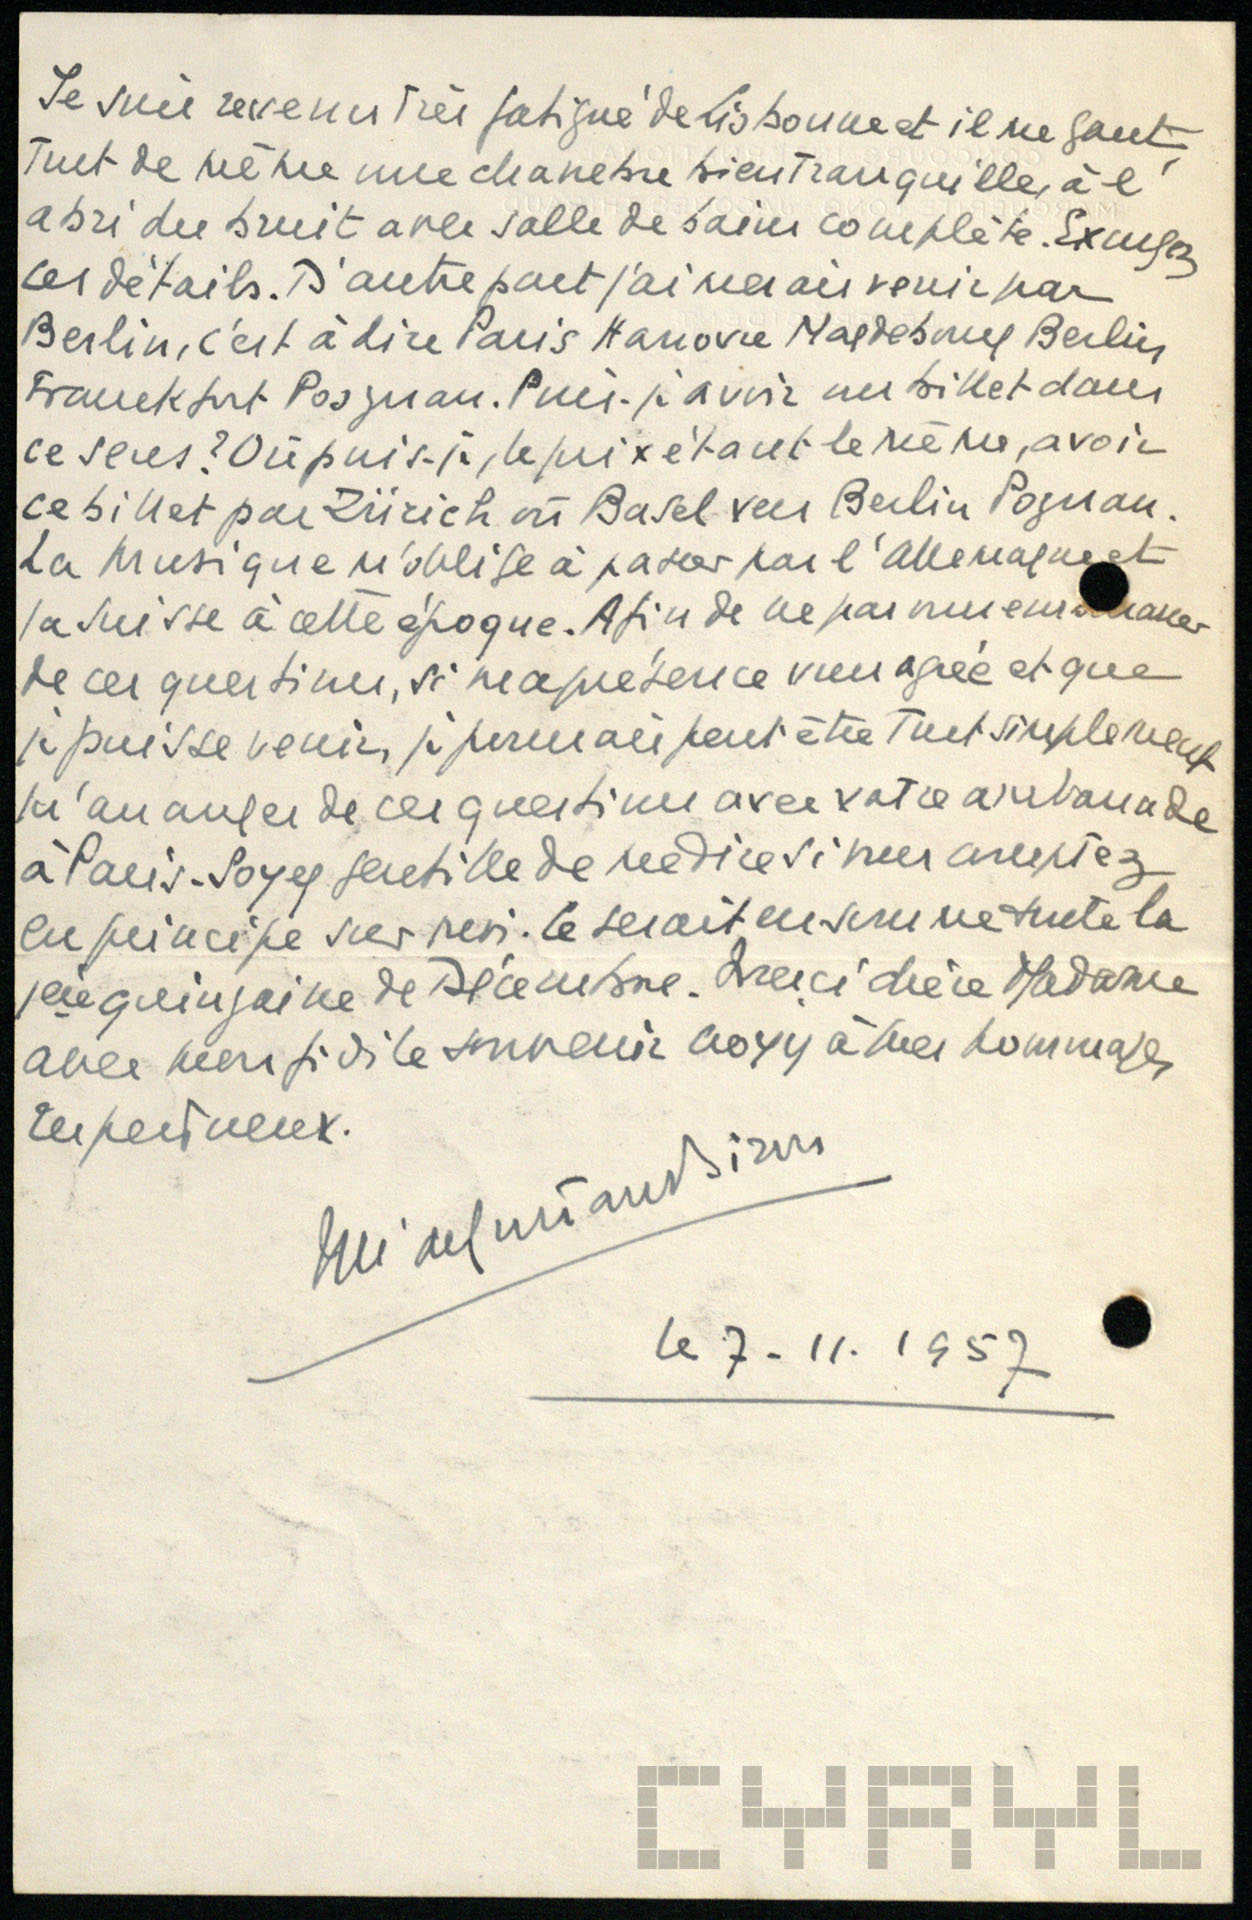 Je suis revenu très fatigué de Lisbonne et il me faut
tout de même une chambre bien tranquille, à l'
abri du bruit avec salle de bains complète. Excusez
ces détails. D'autre part j'aimerais venir par
Berlin, c'est à dire Paris Hanovre Magdebourg Berlin
Franckfurt Poznan. Puis-je avoir un billet dans
ce sens? Où puis-je, le prix étant le même, avoir
ce billet par Zürich où Basel vers Berlin Poznan.
La Musique m'oblige à passer par l'Allemagne et
la Suisse à cette époque. Afin de ne pas vous
de ces questions, si ma présence vous agrée et que
je puisse venir, je pourrais peut être tout simplement
m'arranger de ces questions avec votre ambassade
à Paris. Soyez gentille de me dire si vous comptez
en principe sur moi. Ce serait en somme toute la
1ère quinzaine de Décembre. Merci chère Madame
avec mon fidèle souvenir croyez à mes hommages
respectueux.
le 7-11.1957
CYRYL